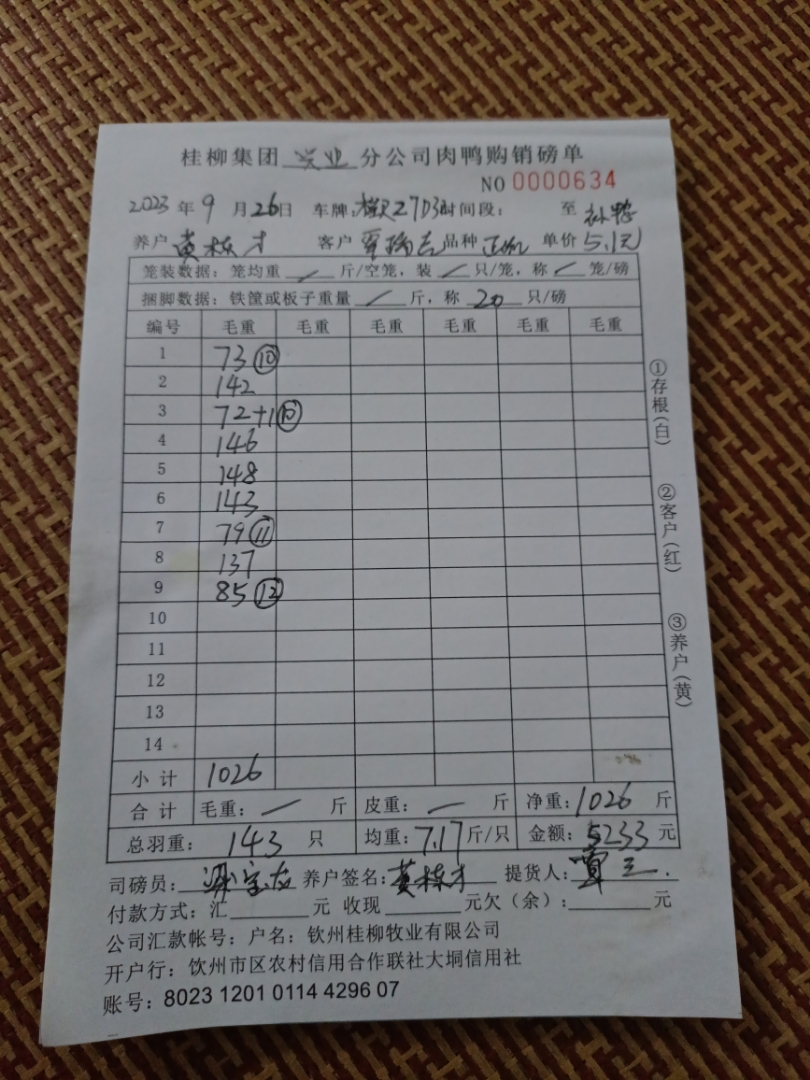 桂柳集团 兴业 分公司肉鸭购销磅单
NO 0000634
2023 年 9 月 26日 车牌: 2703 时间段: 至 补鸭
养户 黄栋才 客户 覃瑞吉 品种 单价 5.1元
笼装数据: 笼均重 / 斤/空笼, 装 / 只/笼, 称 / 笼/磅
捆脚数据: 铁筐或板子重量 / 斤, 称 20 只/磅
编号 毛重 毛重 毛重 毛重 毛重 毛重
1 73 ⑩
2 142
3 72+1 ⑩
4 146
5 148
6 143
7 79 ⑪
8 137
9 85 ⑫
10
11
12
13
14
小计 1026
合计 毛重: / 斤 皮重: / 斤 净重: 1026 斤
总羽重: 143 只 均重: 7.17 斤/只 金额: 5233 元
司磅员: 养户签名: 黄栋才 提货人: 覃三.
付款方式: 汇 元 收现 元欠(余): 元
公司汇款帐号: 户名: 钦州桂柳牧业有限公司
开户行: 钦州市区农村信用合作联社大垌信用社
账号: 8023 1201 0114 4296 07
①存根(白)
②客户(红)
③养户(黄)